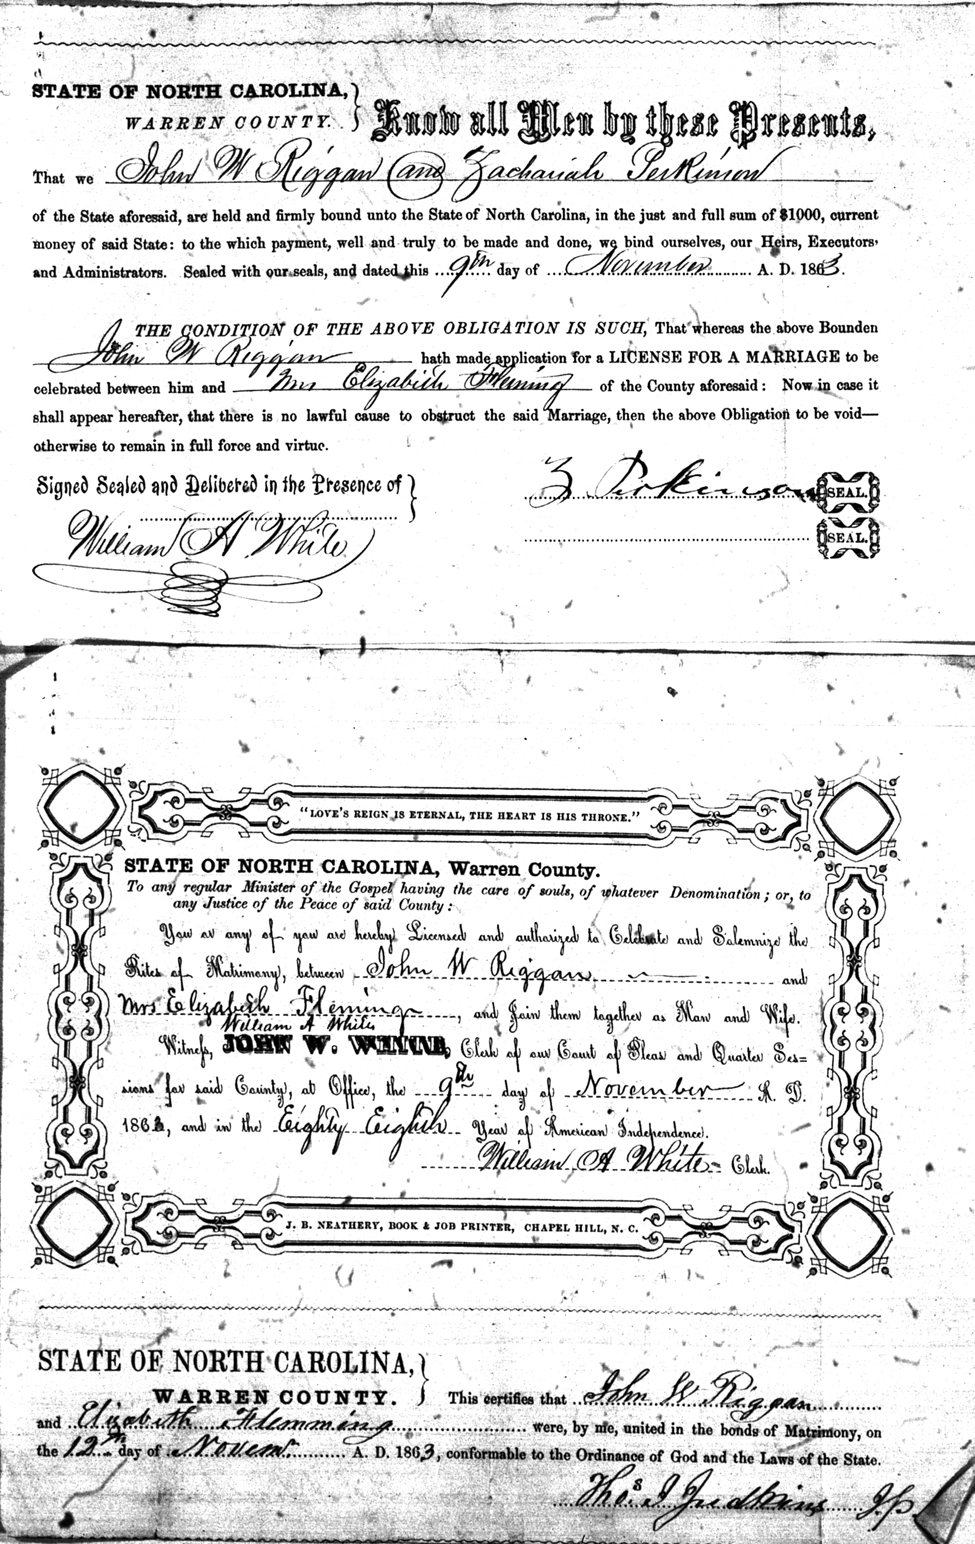 STATE OF NORTH CAROLINA,
WARREN COUNTY.
Know all Men by these Presents,
That we John W Riggan and Zachariah Perkinson
of the State aforesaid, are held and firmly bound unto the State of North Carolina, in the just and full sum of $1000, current
money of said State: to the which payment, well and truly to be made and done, we bind ourselves, our Heirs, Executors,
and Administrators. Sealed with our seals, and dated this 9th day of November A. D. 1863.
THE CONDITION OF THE ABOVE OBLIGATION IS SUCH, That whereas the above Bounden
John W Riggan hath made application for a LICENSE FOR A MARRIAGE to be
celebrated between him and Mrs Elizabeth Fleming of the County aforesaid: Now in case it
shall appear hereafter, that there is no lawful cause to obstruct the said Marriage, then the above Obligation to be void—
otherwise to remain in full force and virtue.
Signed Sealed and Delibered in the Presence of
Z Perkinson SEAL.
William A White
SEAL.
"LOVE'S REIGN IS ETERNAL, THE HEART IS HIS THRONE."
STATE OF NORTH CAROLINA, Warren County.
To any regular Minister of the Gospel having the care of souls, of whatever Denomination; or, to
any Justice of the Peace of said County:
You or any of you are hereby Licensed and authorized to Celebrate and Solemnize the
Rites of Matrimony, between John W Riggan and
Mrs Elizabeth Fleming, and Join them together as Man and Wife.
William A White
Witness, JOHN W. WHITE, Clerk of our Court of Pleas and Quarter Ses=
sions for said County, at Office, the 9th day of November A. D.
1863, and in the Eighty Eighth Year of American Independence.
William A White Clerk.
J. B. NEATHERY, BOOK & JOB PRINTER, CHAPEL HILL, N. C.
STATE OF NORTH CAROLINA,
WARREN COUNTY.
This certifies that John W Riggan
and Elizabeth Flemming were, by me, united in the bonds of Matrimony, on
the 12th day of Novemr A. D. 1863, conformable to the Ordinance of God and the Laws of the State.
Thos J Judkins J.P.